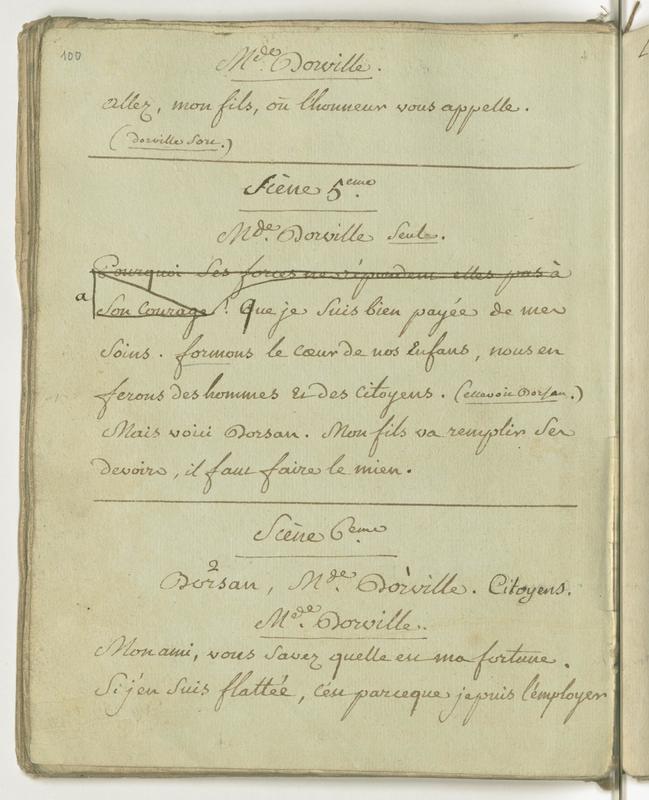 100
Mde. Dorville.
allez, mon fils, où l'honneur vous appelle.
(Dorville Sort.)
Scène 5eme.
Mde. Dorville Seule.
Pourquoi Ses forces ne répondent elles pas à
a Son Courage? Que je Suis bien payée de mes
Soins. formons le cœur de nos Enfans, nous en
ferons des hommes Et des Citoyens. (elle voit Dorsan.)
Mais voici Dorsan. Mon fils va remplir Ses
devoirs, il faut faire le mien.
Scène 6eme.
2
Dorsan, Mde. Dorville. Citoyens.
Mde. Dorville.
Mon ami, vous Savez quelle est ma fortune.
Si j'en Suis flattée, c'est parceque je puis l'employer